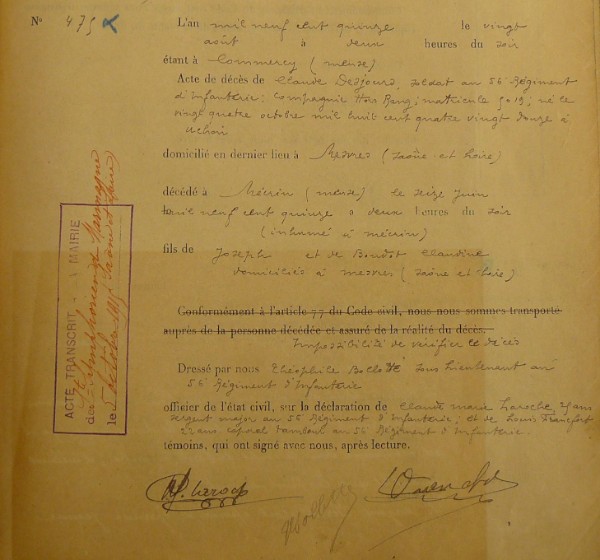 N° 475 L'an mil neuf cent quinze le vingt
août à deux heures du soir
étant à Commercy (meuse)
Acte de décès de Claude Desjours, soldat au 56e Régiment
d'Infanterie: Compagnie Hors Rang; matricule 5019; né le
vingt quatre octobre mil huit cent quatre vingt douze à
Uchon
domicilié en dernier lieu à Mesvres (Saône-et-Loire)
décédé à Mécrin (meuse) le seize juin
mil neuf cent quinze à deux heures du soir
(inhumé à mécrin)
fils de Joseph et de Boudot Claudine
domiciliés à mesvres (Saône et Loire)
Conformément à l'article 77 du Code civil, nous nous sommes transporté
auprès de la personne décédée et assuré de la réalité du décès.
Impossibilité de vérifier le décès
Dressé par nous Théophile sous lieutenant au
56e Régiment d'Infanterie
officier de l'état civil, sur la déclaration de Claude marie Laroche, ans
sergent major au 56e Régiment d'Infanterie; et de Louis
22 ans caporal tambour au 56e Régiment d'Infanterie.
témoins, qui ont signé avec nous, après lecture.
Laroche
ACTE TRANSCRIT A LA MAIRIE
de St Symphorien de Marmagne
le 5 octobre 1915 Saône et Loire